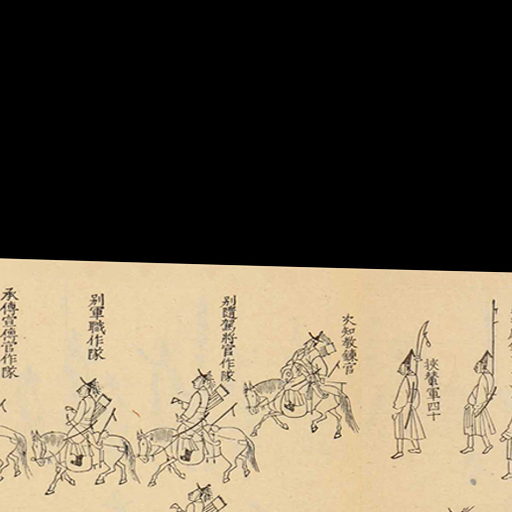 挾輦軍四十
次知敎鍊官
別隨駕將官作隊
別軍職作隊
承傳宣傳官作隊